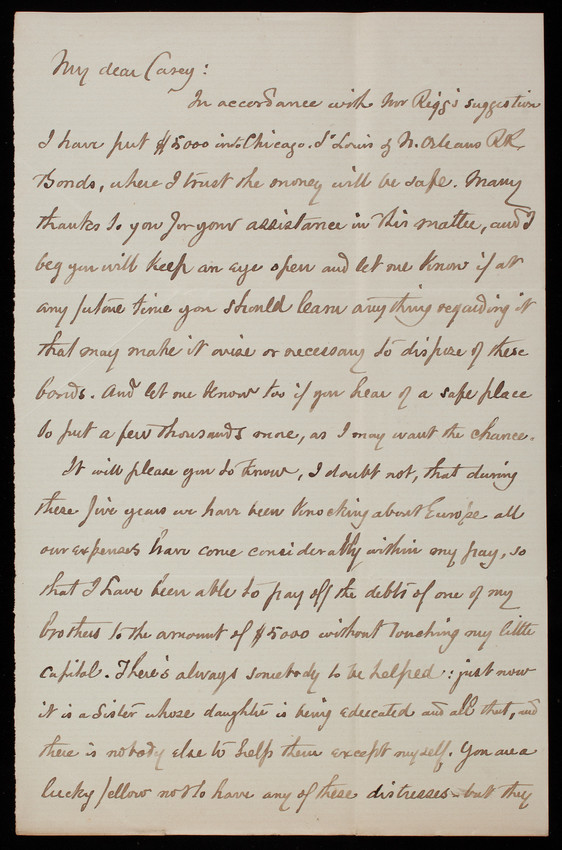 My dear Casey:
In accordance with Mr Riggs suggestion
I have put $5000 into Chicago. St Louis & N. Orleans RR.
Bonds, where I trust the money will be safe. Many
thanks to you for your assistance in this matter, and I
beg you will keep an eye open and let me know if at
any future time you should learn anything regarding it
that may make it wise or necessary to dispose of these
bonds. And let me know too if you hear of a safe place
to put a few thousands more, as I may want the chance.
It will please you to know, I doubt not, that during
these five years we have been knocking about Europe all
our expenses have come considerably within my pay, so
that I have been able to pay off the debts of one of my
brothers to the amount of $5000 without touching my little
capital. There's always somebody to be helped: just now
it is a sister whose daughter is being educated and all that, and
there is nobody else to help them except myself. You are a
lucky fellow not to have any of these distresses - but they